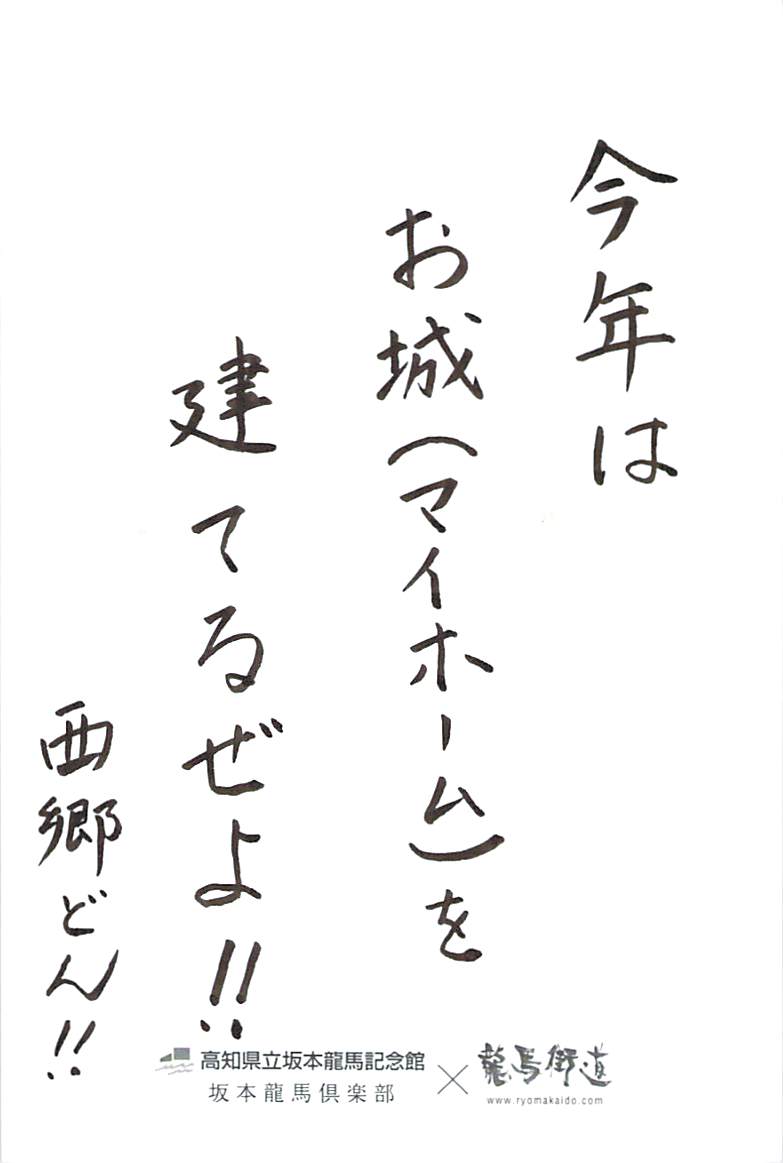 今年は
お城(マイホーム)を
建てるぜよ!!
西郷どん!!
高知県立坂本龍馬記念館
坂本龍馬倶楽部
×
龍馬街道
www.ryomakaido.com